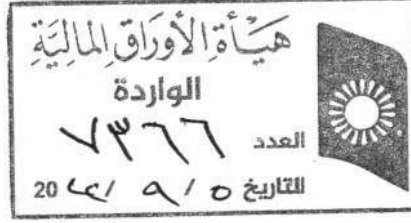 هَيـأة الأَورَاق المَاليَّةِ
الواردة
العدد ٧٣٦٦
التاريخ ٥ / ٩ / ٢٠٢٤